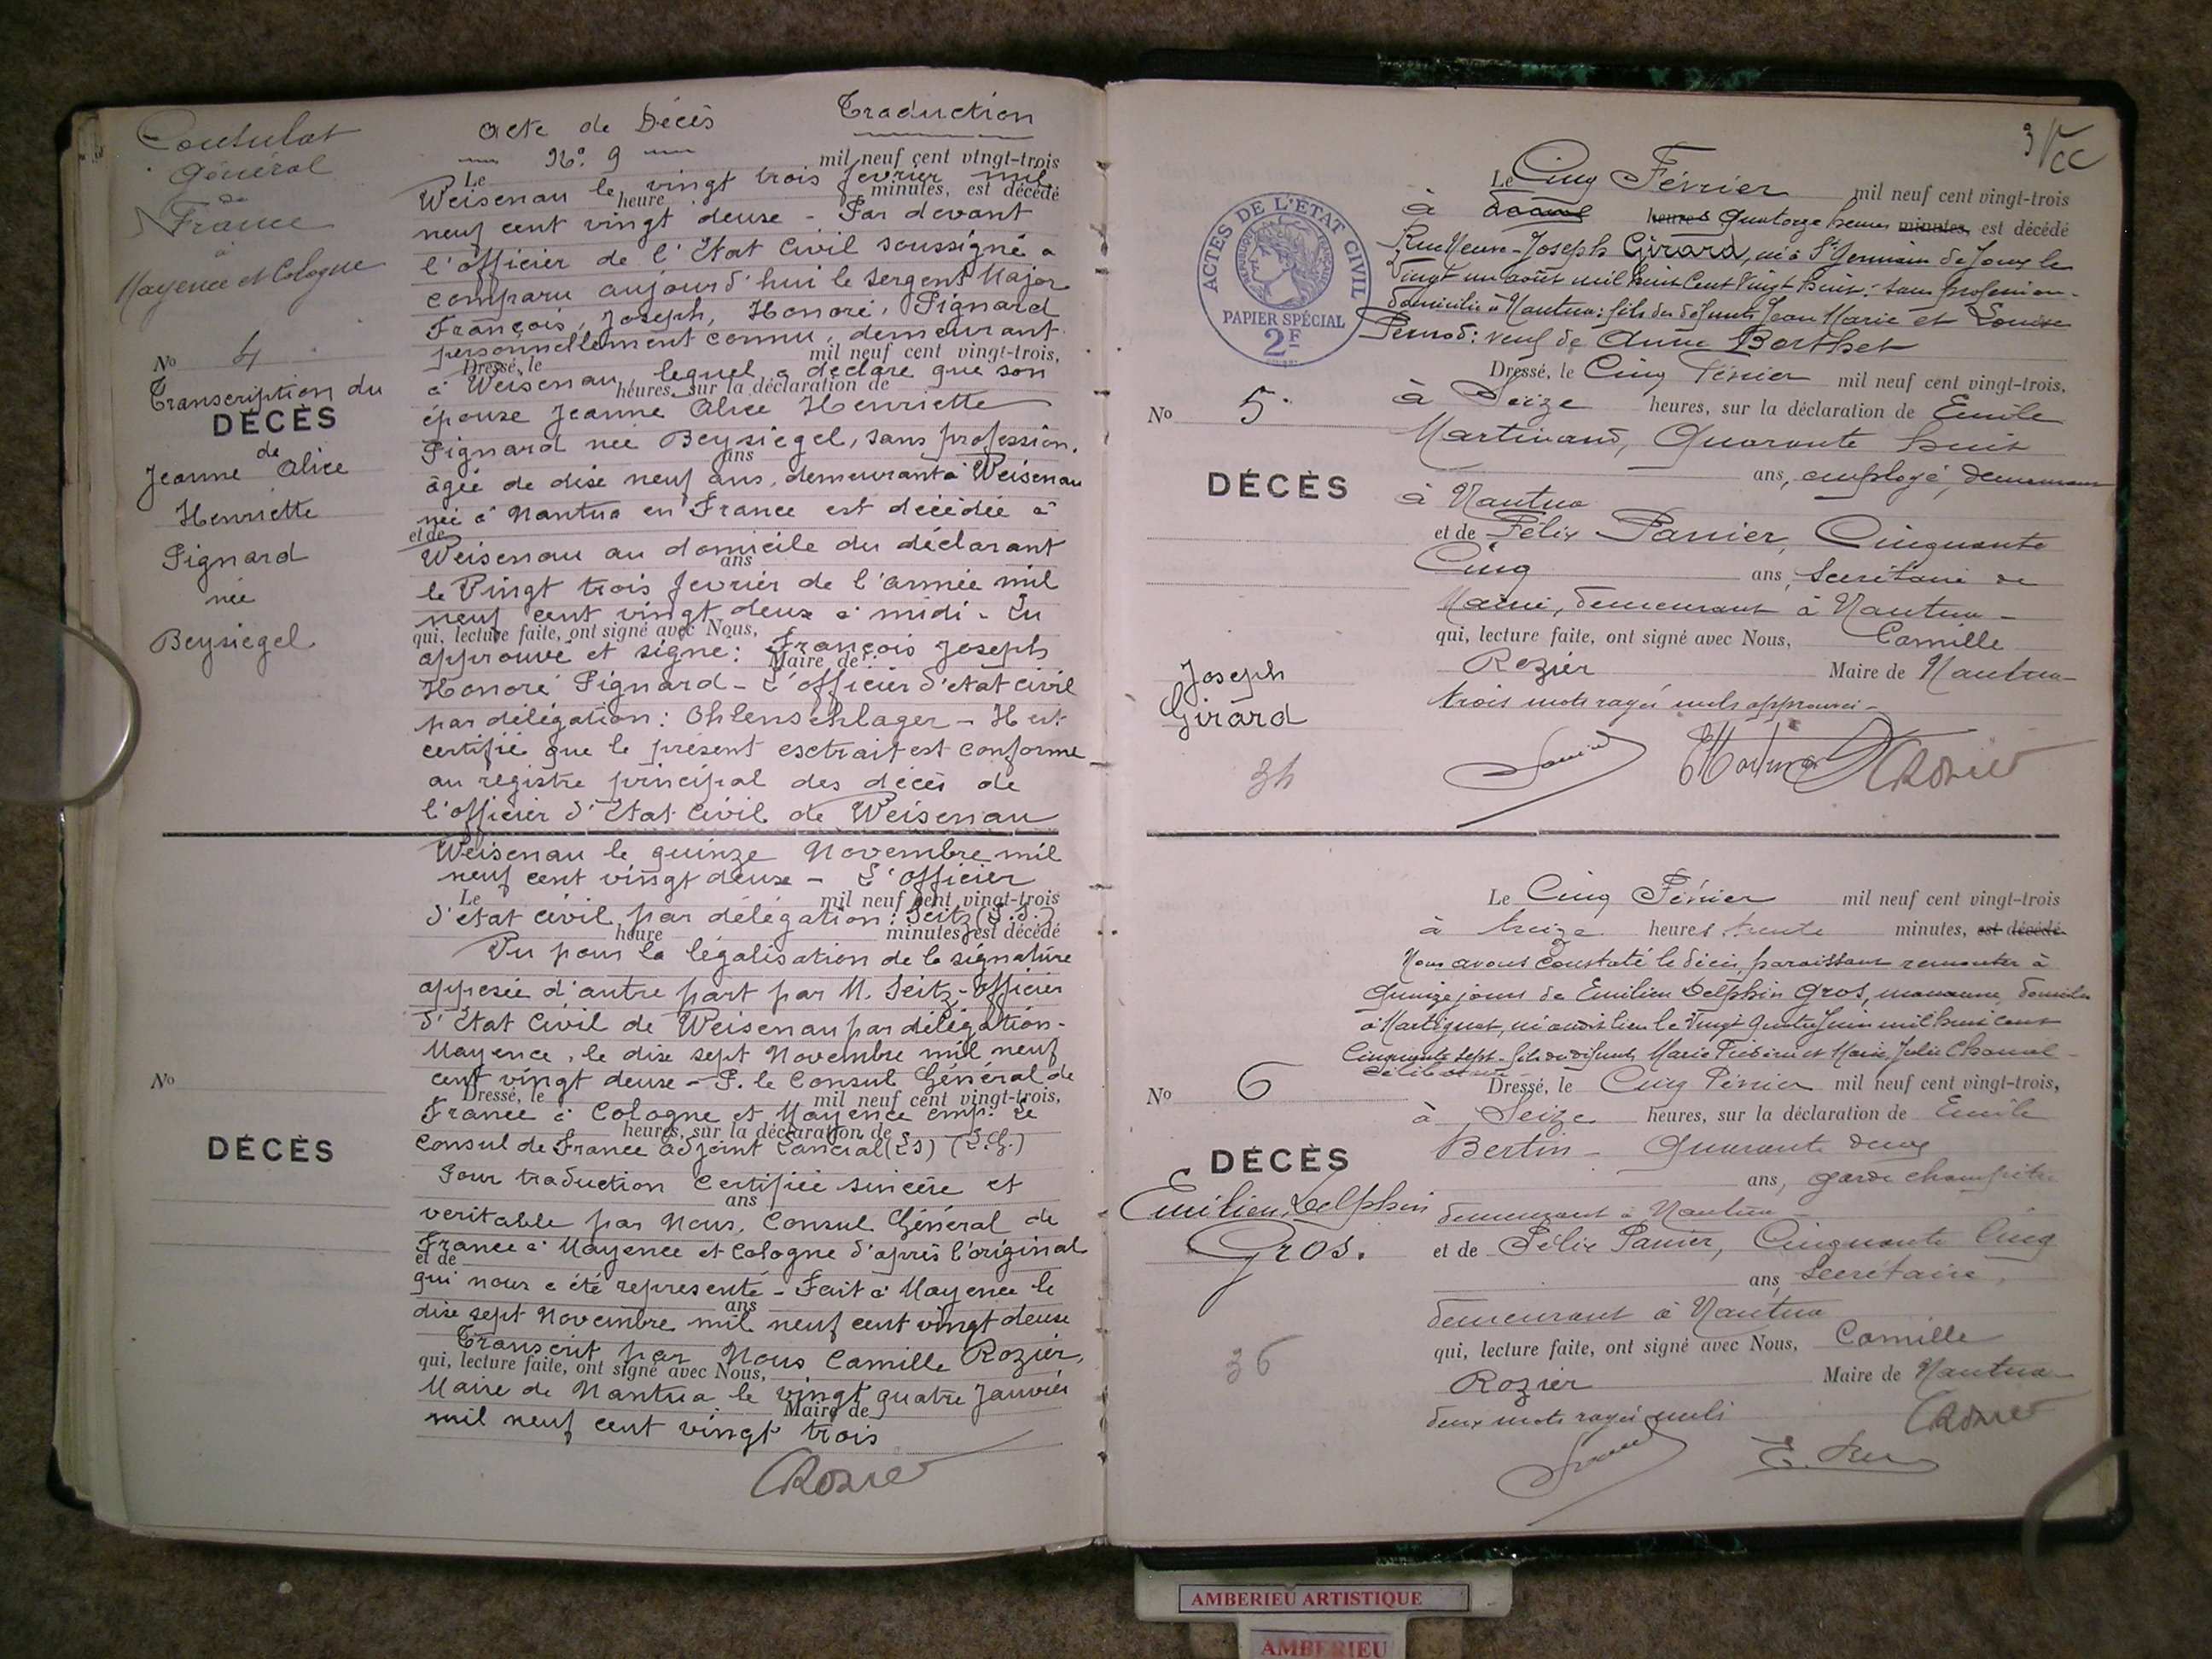 Consulat
Général
de
France
à
Mayence et Cologne
No 4
Transcription du
DÉCÈS
de
Jeanne Alice
Henriette
Pignard
née
Beysiegel
Acte de Décès Traduction
No. 9
mil neuf cent vingt-trois
Le
Weisenau le vingt trois fevrier mil
heure minutes, est décédé
neuf cent vingt deux - Par devant
l'officier de l'Etat Civil soussigné a
comparu aujourd'hui le Sergent Major
François, Joseph, Honoré, Pignard
personnellement connu, demeurant
Dressé, le mil neuf cent vingt-trois,
à Weisenau, lequel a déclaré que son
heures, sur la déclaration de
épouse Jeanne Alice Henriette
Pignard née Beysiegel, sans profession,
ans
âgée de dix neuf ans, demeurant à Weisenau
née à Nantua en France est décédée à
et de
Weisenau au domicile du déclarant
ans
le Vingt trois fevrier de l'année mil
neuf cent vingt deux à midi - Lu
qui, lecture faite, ont signé avec Nous,
approuvé et signé: François Joseph
Maire de
Honoré Pignard - L'officier d'etat civil
par délégation: Ohlenschlager - Il est
certifié que le présent extrait est conforme
au registre principal des décès de
l'officier d'Etat Civil de Weisenau
Weisenau le quinze Novembre mil
neuf cent vingt deux - L'officier
Le mil neuf cent vingt-trois
d'etat civil par délégation: Seitz (S.S.)
heure minutes, est décédé
Vu pour la légalisation de la signature
apposée d'autre part par M. Seitz - Officier
d'Etat Civil de Weisenau par délégation-
Mayence, le dix sept Novembre mil neuf
No
cent vingt deux - P. le Consul Général de
Dressé, le mil neuf cent vingt-trois,
France à Cologne et Mayence emp: Le
heures, sur la déclaration de
DÉCÈS
Consul de France adjoint Lancial (LS) (S.G.)
Pour traduction Certifiée sincère et
ans
veritable par Nous, Consul Général de
France à Mayence et Cologne d'après l'original
et de
qui nous a été représenté - Fait à Mayence le
ans
dix sept Novembre mil neuf cent vingt deux
Transcrit par Nous Camille Rozier,
qui, lecture faite, ont signé avec Nous,
Maire de Nantua le vingt quatre Janvier
Maire de
mil neuf cent vingt trois
CRozier
3
ACTES DE L'ÉTAT CIVIL
RÉPUBLIQUE FRANÇAISE
PAPIER SPÉCIAL
2F
Le Cinq Février mil neuf cent vingt-trois
à heures Quatorze heures minutes, est décédé
Rue Neuve - Joseph Girard, né à St Germain de Joux le
Vingt un août mil huit Cent Vingt huit: sans profession -
domicilié à Nantua: fils des défunts Jean Marie et Louise
Pernod: veuf de Anne Berthet
Dressé, le Cinq Février mil neuf cent vingt-trois,
No 5.
à Seize heures, sur la déclaration de Emile
Martinand, Quarante huit
DÉCÈS
ans, employé, demeurant
à Nantua
et de Félix Panier, Cinquante
Cinq ans, Secrétaire de
Mairie, demeurant à Nantua -
qui, lecture faite, ont signé avec Nous, Camille
Rozier Maire de Nantua
Joseph
Girard
trois mots rayés nuls approuvés -
34
Panier EMartinand CRozier
Le Cinq Février mil neuf cent vingt-trois
à treize heures trente minutes, est décédé
Nous avons Constaté le décès paraissant remonter à
Quinze jours de Emilien Delphin Gros, domicilié
à Martignat, né audit lieu le Vingt Quatre Juin mil huit cent
Cinquante Sept - fils de défunts Marie Frédéric et Marie Julie Chanal -
Célibataire
Dressé, le Cinq Février mil neuf cent vingt-trois,
No 6
à Seize heures, sur la déclaration de Emile
Bertin - Quarante deux
DÉCÈS
ans, garde champêtre
Emilien Delphin
Gros.
demeurant à Nantua -
et de Félix Panier, Cinquante Cinq
ans, Secrétaire,
demeurant à Nantua
qui, lecture faite, ont signé avec Nous, Camille
Rozier Maire de Nantua
36
deux mots rayés nuls
CRozier
Panier
AMBERIEU ARTISTIQUE
AMBERIEU